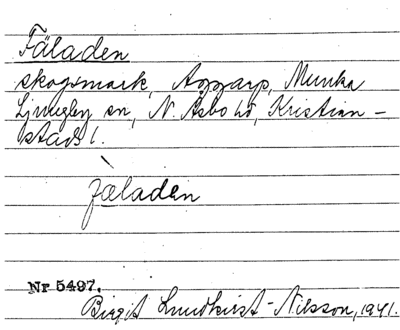 Fäladen
skogsmark, Aggarp, Munka
Ljungby sn, N. Åsbo hd, Kristian-
stads l.
fæladen
Nr 5497.
Birgit Lundkvist-Nilsson, 1941.